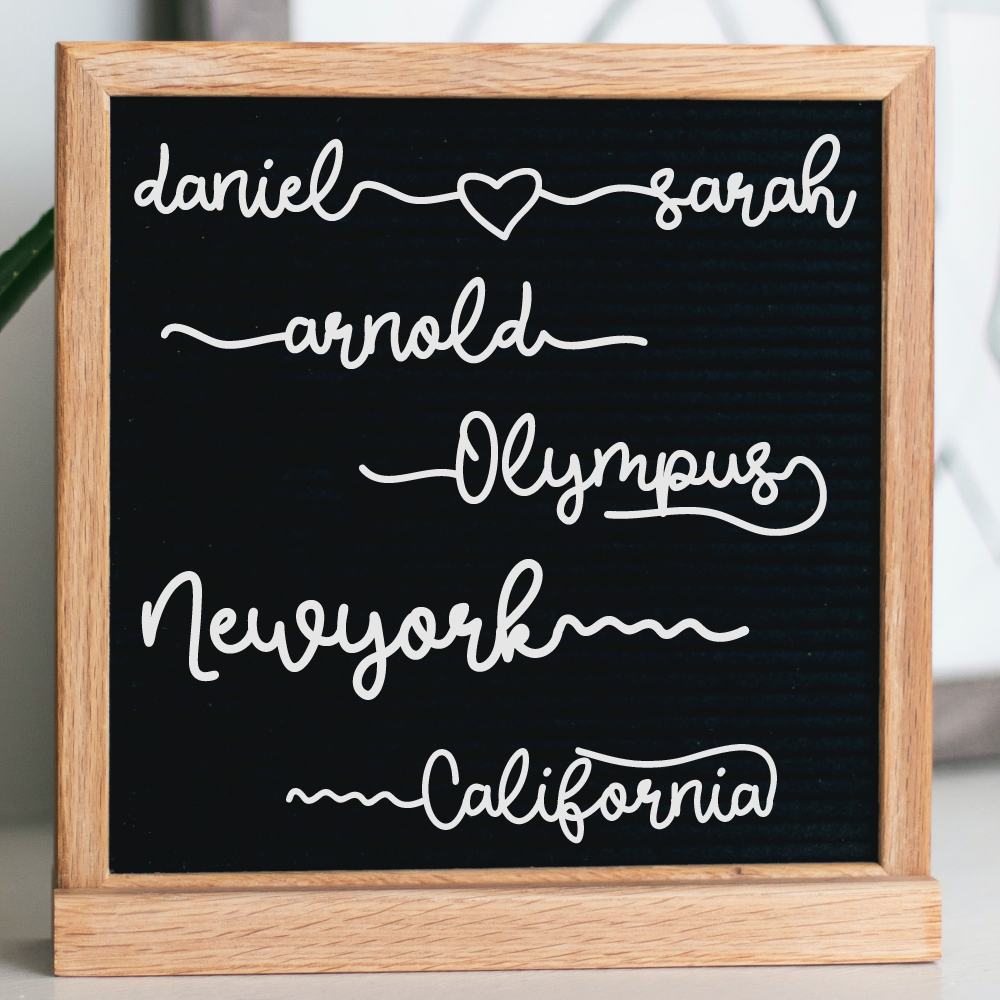 daniel ♡ sarah
arnold
Olympus
Newyork
California